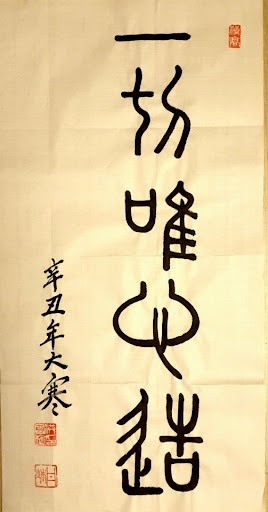 一切唯心造
辛丑年大寒